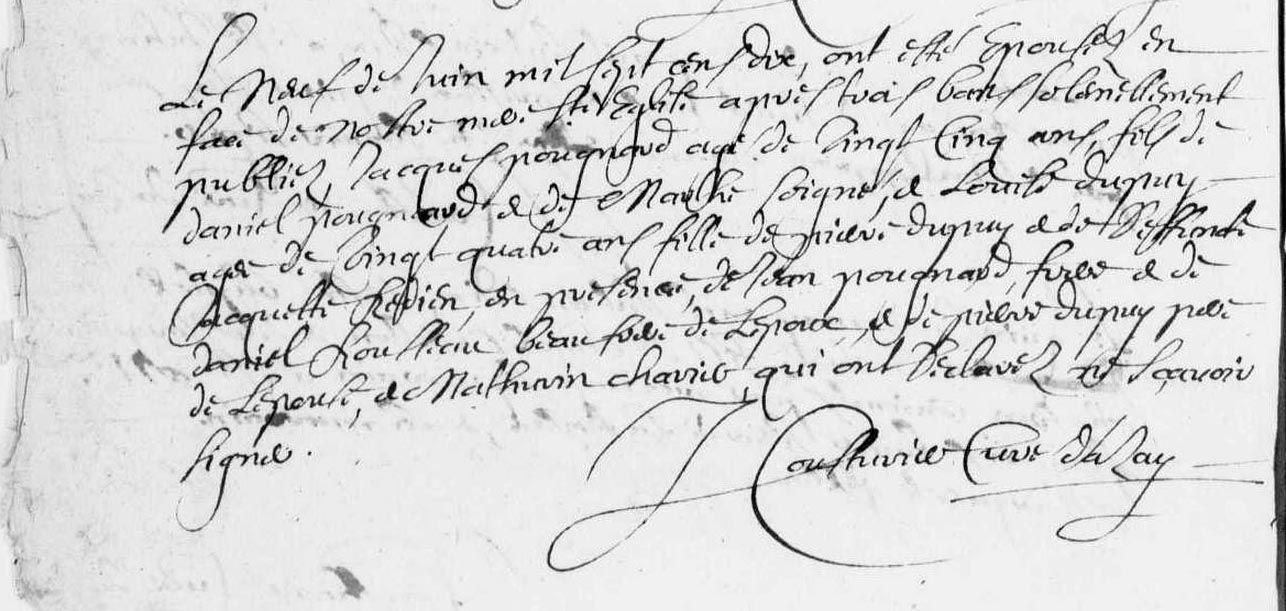 Le Neuf de Juin mil sept cens dix, ont esté Epousez en
face de nostre mere Ste Eglise apres trois bans solenellement
publiez, Jacques pougnard agé de Vingt Cinq ans, fils de
daniel pougnard & de Marthe Soigné, & Louise dupuy
agée de Vingt quatre ans fille de pierre dupuy & de Deffunte
Jacquette, en presence, de Jean pougnard, frere & de
daniel Rousseau beaufrere de Lepoux, & de pierre dupuy pere
de Lepouse, & Mathurin, qui ont declarez ne scavoir
signer.
J Cousturier Curé d'Azay